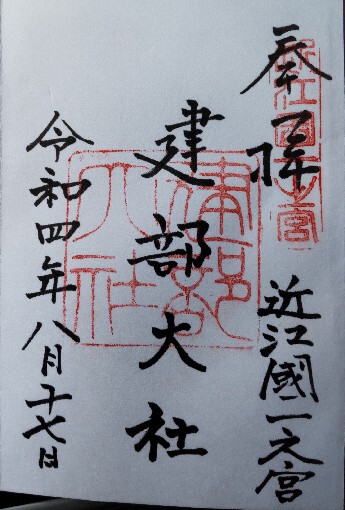 奉拝
近江國一之宮
建部大社
令和四年八月十七日
近江國一之宮
建部大社